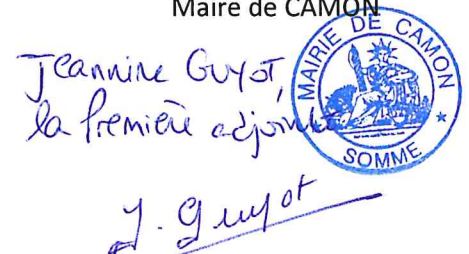 Maire de CAMON
Jeannine Guyot,
la Première adjointe
MAIRIE DE CAMON
SOMME
J. Guyot